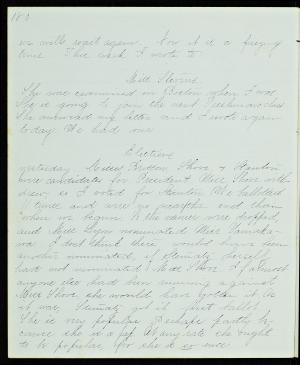 180
we will wait again. For it is a freezing
time. This week I wrote to
Nell Stevens
She was examined in Boston when I was
She is going to join the next Freshman class
She answered my letter and I wrote again
today. We had our
Elections
yesterday. Misses Shove &
were candidates for President. Miss Shove with-
drew, so I voted for We balloted
11 times and were no nearer the end than
when we began. So the names were dropped,
and Miss nominated Miss
I don't think there would have been
another nominated, if herself
had not nominated Miss Shove. If almost
anyone else had been running against
Miss Shove she would have gotten it. As
it was, got it first ballot.
She is very popular, perhaps partly be-
cause she is a Jap. At any rate she ought
to be popular, for she is so nice.